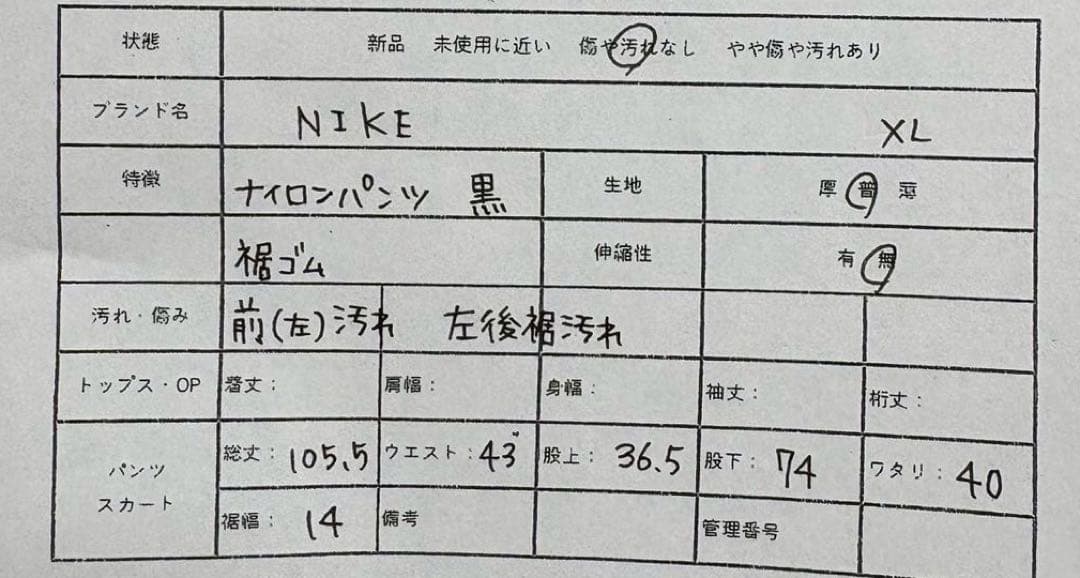 状態 新品 未使用に近い 傷や汚れなし やや傷や汚れあり
ブランド名 NIKE XL
特徴 ナイロンパンツ 黒 生地 厚 普 薄
裾ゴム 伸縮性 有 無
汚れ・傷み 前(左)汚れ 左後裾汚れ
トップス・OP 着丈: 肩幅: 身幅: 袖丈: 裄丈:
パンツ
スカート
総丈: 105.5 ウエスト: 43 股上: 36.5 股下: 74 ワタリ: 40
裾幅: 14 備考 管理番号